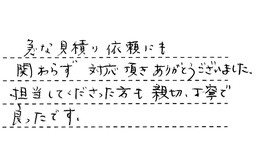 急な見積り依頼にも
関わらず 対応頂きありがとうございました。
担当してくださった方も 親切、丁寧で
良ったです。